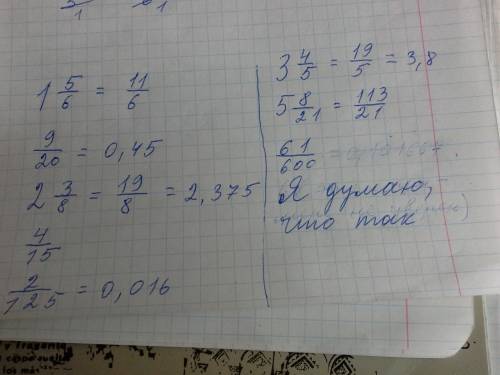 1 5/6 = 11/6
9/20 = 0,45
2 3/8 = 19/8 = 2,375
4/15
2/125 = 0,016
3 4/5 = 19/5 = 3,8
5 8/21 = 113/21
61/600
Я думаю,
что так